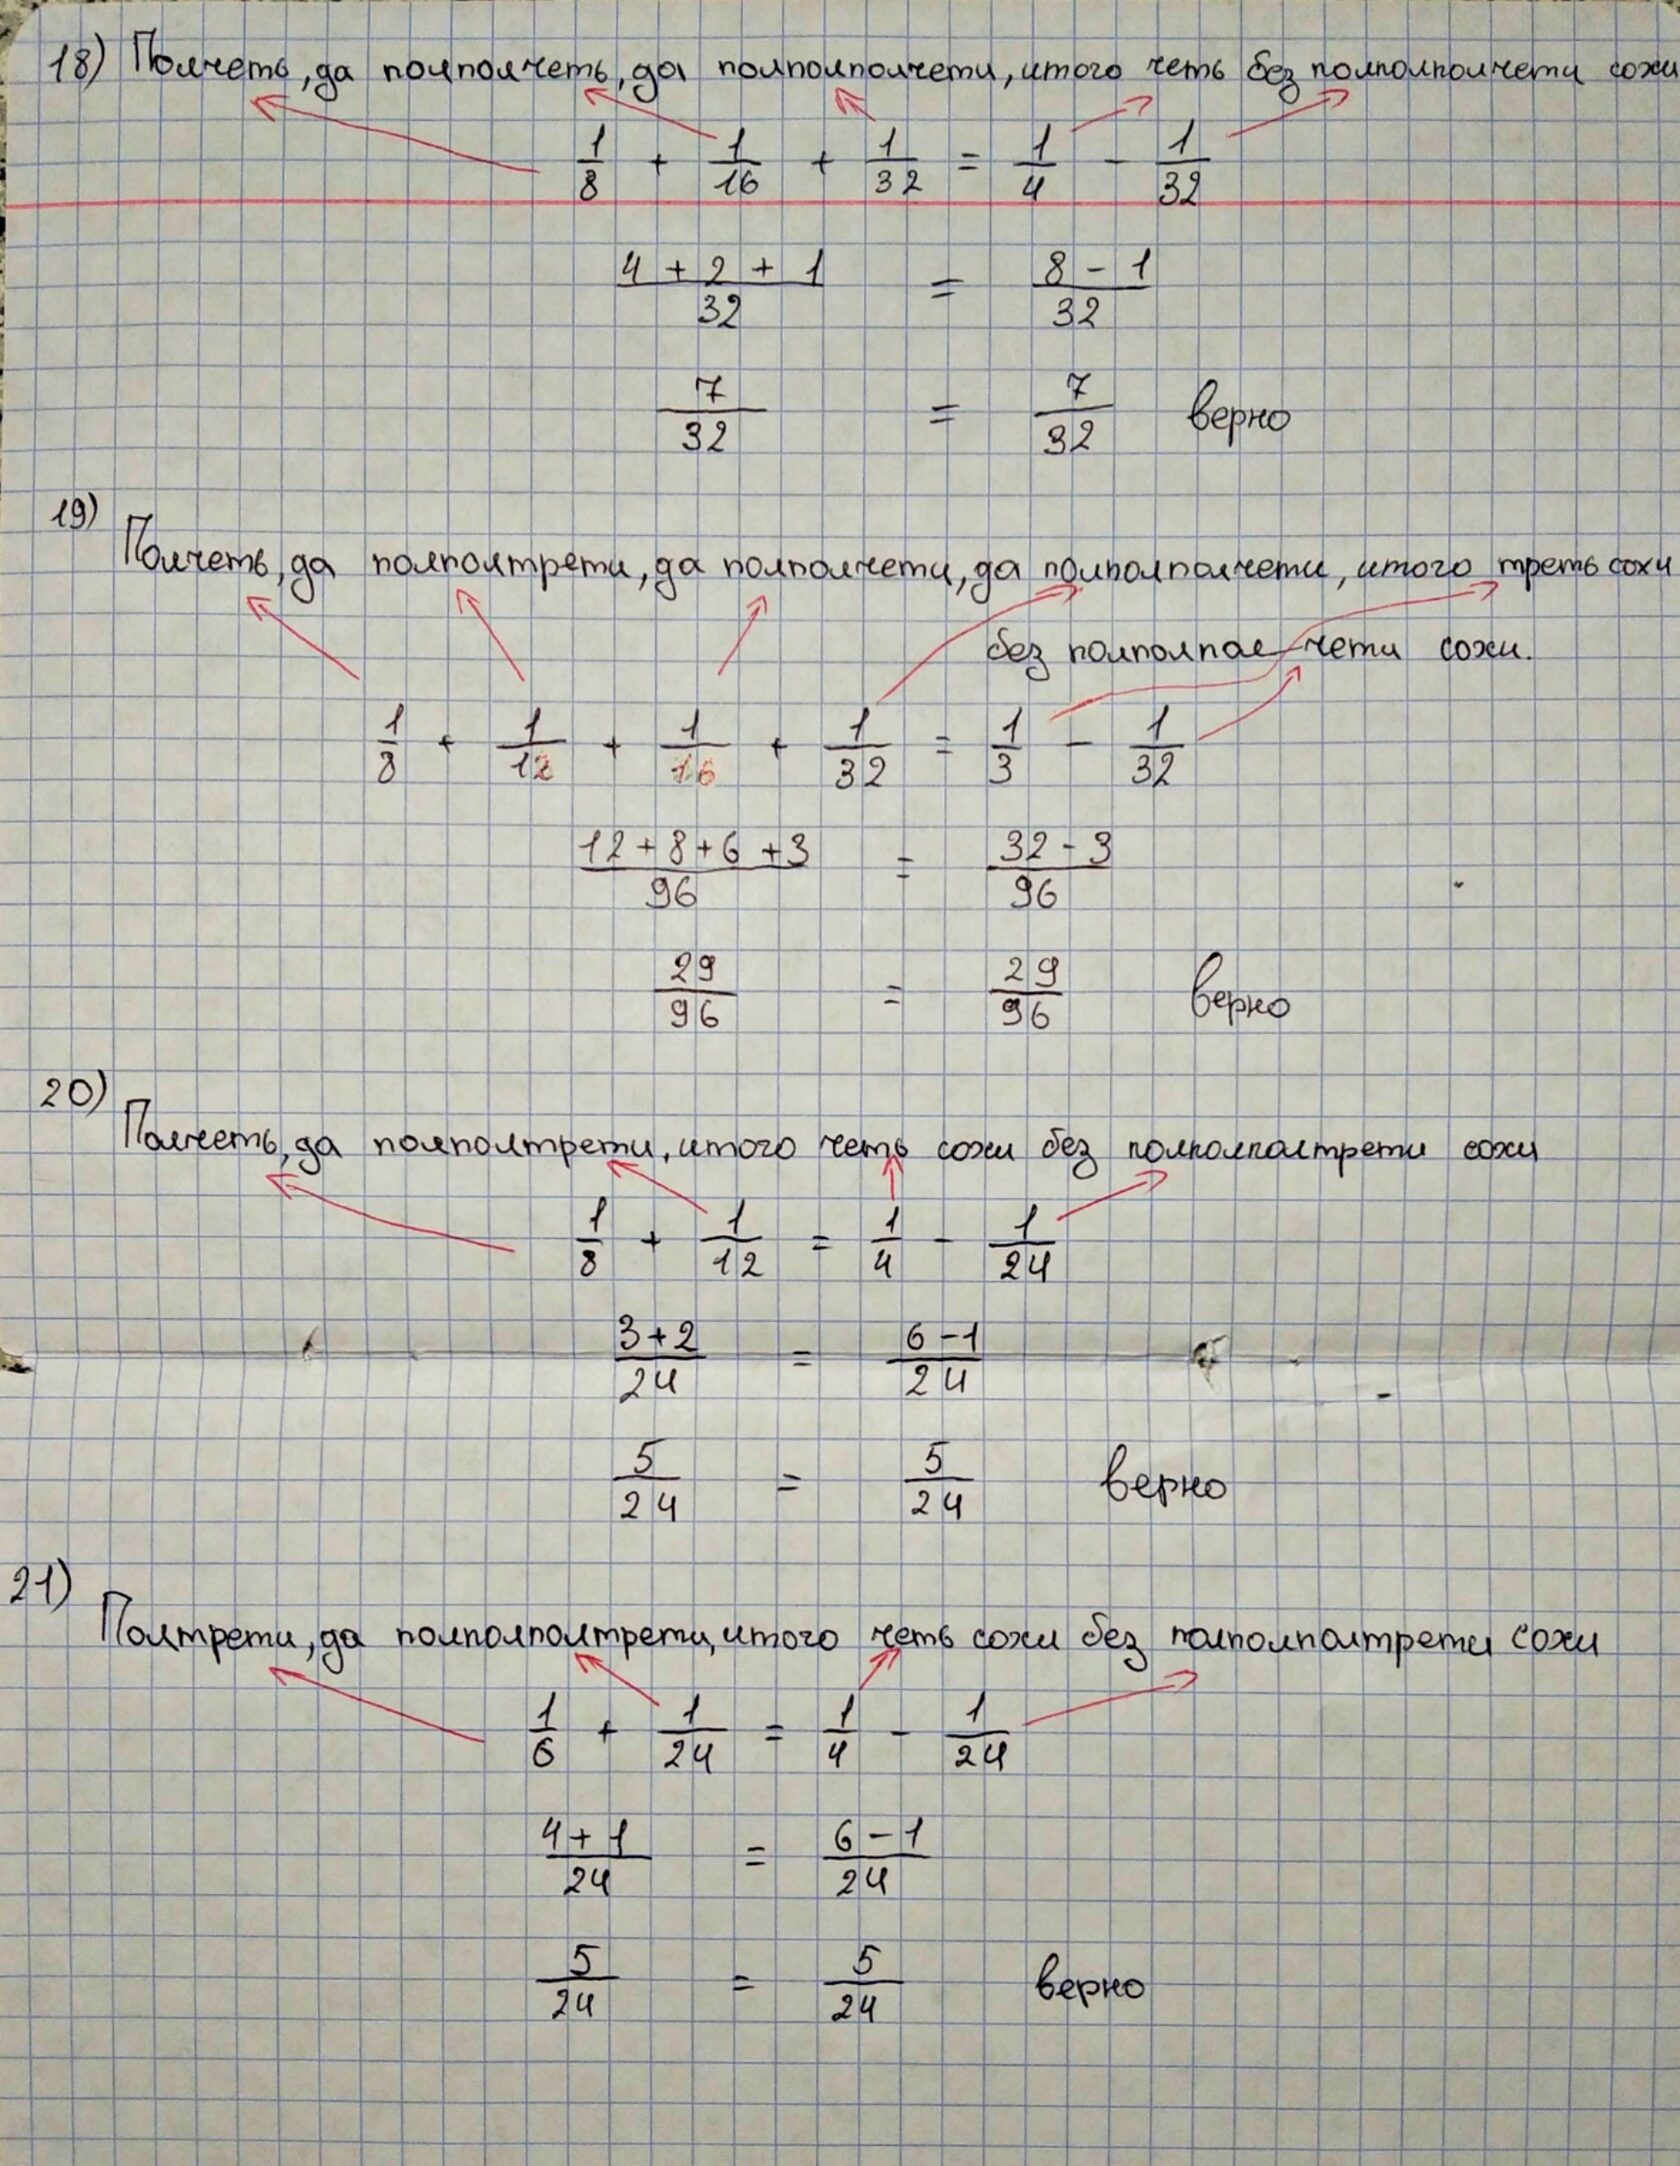 18) Полчеть, да полполчеть, да полполполчети, итого четь без полполполчети сохи
1/8 + 1/16 + 1/32 = 1/4 - 1/32
4 + 2 + 1/32 = 8 - 1/32
7/32 = 7/32 верно
19)
Полчеть, да полполтрети, да полполчети, да полполполчети, итого треть сохи
без полполпол чети сохи.
1/8 + 1/12 + 1/16 + 1/32 = 1/3 - 1/32
12 + 8 + 6 + 3/96 = 32 - 3/96
29/96 = 29/96 верно
20)
Полчеть, да полполтрети, итого четь сохи без полполполтрети сохи
1/8 + 1/12 = 1/4 - 1/24
3 + 2/24 = 6 - 1/24
5/24 = 5/24 верно
21)
Полтрети, да полполполтрети, итого четь сохи без полполполтрети сохи
1/6 + 1/24 = 1/4 - 1/24
4 + 1/24 = 6 - 1/24
5/24 = 5/24 верно